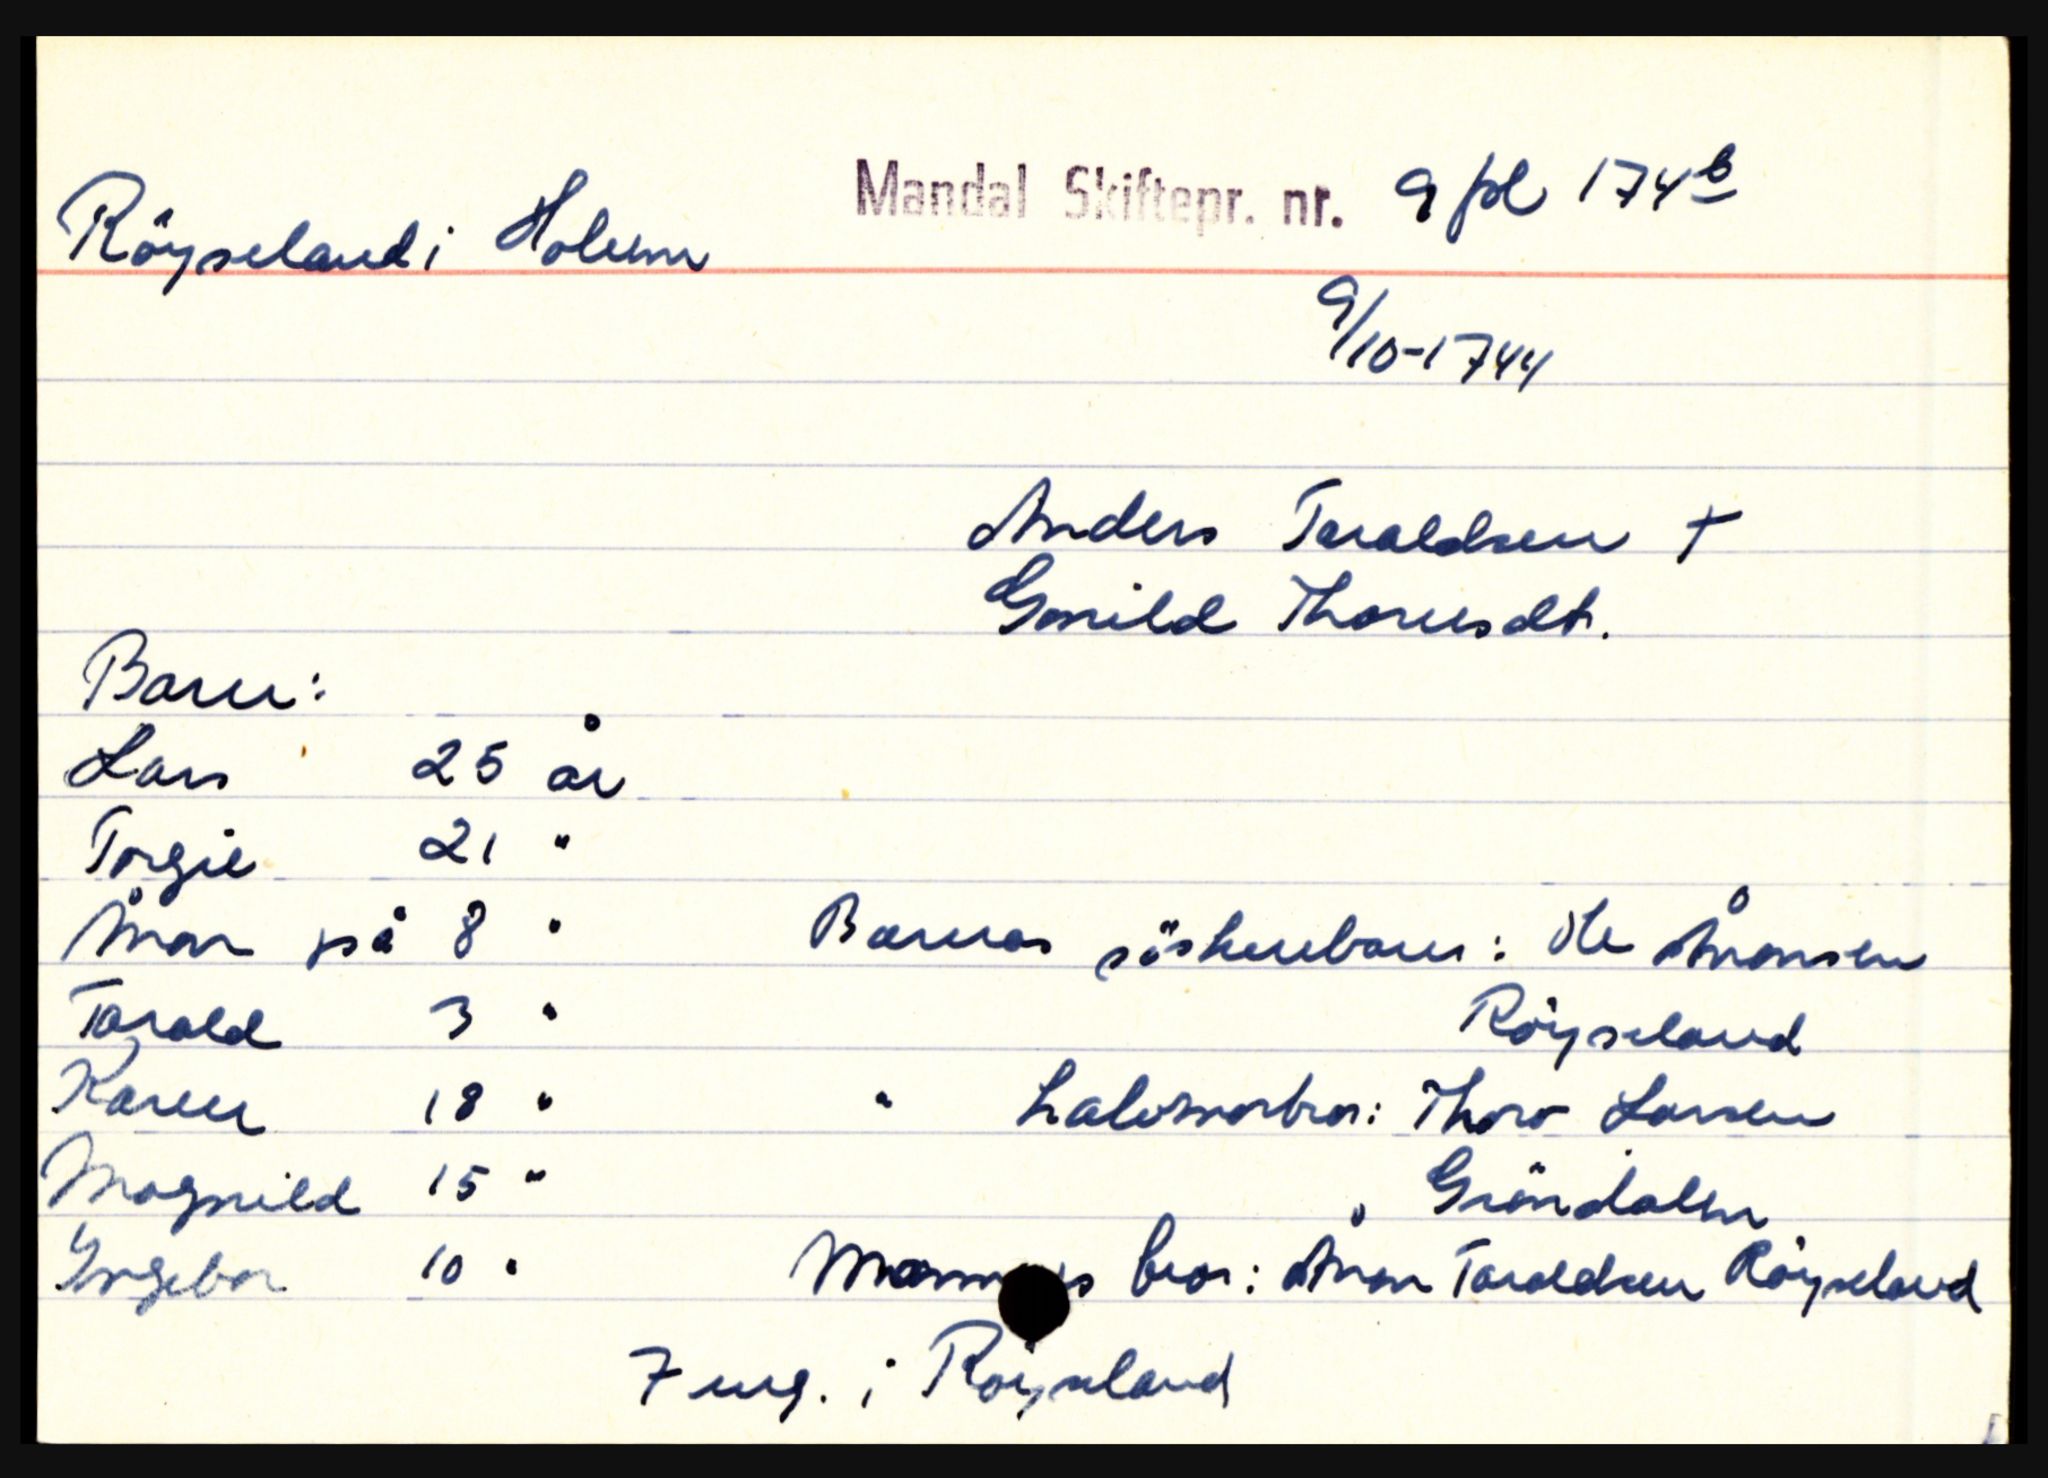 Mandal Skiftepr. nr. 9 fol 174b
Röyseland i Holum
9/10-1744
Anders Taraldsen +
Gunild Thorusdt.
Barn:
Lars 25 år
Torgie 21 "
Ånon på 8 " Barnas söskenbarn: Ole Ånonsen
Tarald 3 " Röyseland
Karen 18 " " halvmorbror: Thoro Larsen
Magnild 15 " Gröndalen
Yngebor 10 " Mannens bror: Ånon Taraldsen Röyseland
7 eng. i Röyseland